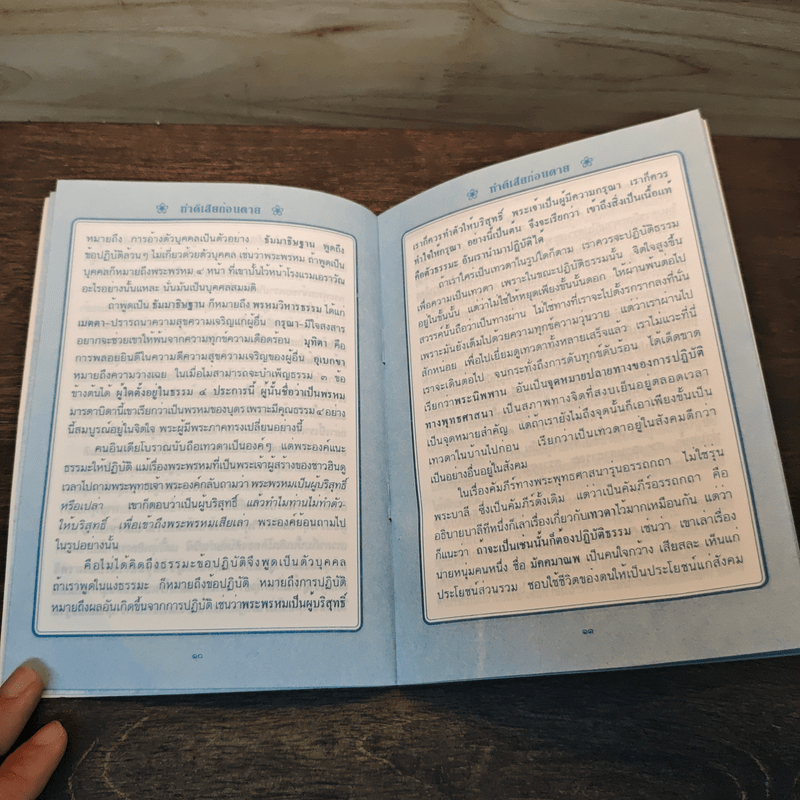 ทำดีเสียก่อนตาย
หมายถึง การอ้างตัวบุคคลเป็นตัวอย่าง ธัมมาธิษฐาน พูดถึง
ข้อปฏิบัติล้วนๆ ไม่เกี่ยวด้วยตัวบุคคล เช่นว่าพระพรหม ถ้าพูดเป็น
บุคคลก็หมายถึงพระพรหม ๔ หน้า ที่เขาปั้นไว้หน้าโรงแรมเอราวัณ
อะไรอย่างนั้นแหละ นั่นมันเป็นบุคคลสมมติ
ถ้าพูดเป็น ธัมมาธิษฐาน ก็หมายถึง พรหมวิหารธรรม ได้แก่
เมตตา-ปรารถนาความสุขความเจริญแก่ผู้อื่น กรุณา-มีใจสงสาร
อยากจะช่วยเขาให้พ้นจากความทุกข์ความเดือดร้อน มุทิตา คือ
การพลอยยินดีในความดีความสุขความเจริญของผู้อื่น อุเบกขา
หมายถึงความวางเฉย ในเมื่อไม่สามารถจะบำเพ็ญธรรม ๓ ข้อ
ข้างต้นได้ ผู้ใดตั้งอยู่ในธรรม ๔ ประการนี้ ผู้นั้นชื่อว่าเป็นพรหม
มารดาบิดานี้เขาเรียกว่าเป็นพรหมของบุตร เพราะมีคุณธรรม ๔ อย่าง
นี้สมบูรณ์อยู่ในจิตใจ พระผู้มีพระภาคทรงเปลี่ยนอย่างนี้
คนอินเดียโบราณนับถือเทวดาเป็นองค์ๆ แต่พระองค์แนะ
ธรรมะให้ปฏิบัติ แม้เรื่องพระพรหมที่เป็นพระเจ้าผู้สร้างของชาวฮินดู
เวลาไปถามพระพุทธเจ้า พระองค์กลับถามว่า พระพรหมเป็นผู้บริสุทธิ์
หรือเปล่า เขาก็ตอบว่าเป็นผู้บริสุทธิ์ แล้วทำไมท่านไม่ทำตัว-
ให้บริสุทธิ์ เพื่อเข้าถึงพระพรหมเสียเล่า พระองค์ย้อนถามไป
ในรูปอย่างนั้น
คือไม่ได้คิดถึงธรรมะข้อปฏิบัติจึงพูดเป็นตัวบุคคล
ถ้าเราพูดในแง่ธรรมะ ก็หมายถึงข้อปฏิบัติ หมายถึงการปฏิบัติ
หมายถึงผลอันเกิดขึ้นจากการปฏิบัติ เช่นว่าพระพรหมเป็นผู้บริสุทธิ์
๑๐
ทำดีเสียก่อนตาย
เราก็ควรทำตัวให้บริสุทธิ์ พระเจ้าเป็นผู้มีความกรุณา เราก็ควร
ทำใจให้กรุณา อย่างนี้เป็นต้น จึงจะเรียกว่า เข้าถึงสิ่งเป็นเนื้อแท้
คือตัวธรรมะ อันเรานำมาปฏิบัติได้
ถ้าเราใครเป็นเทวดาในรูปใดก็ตาม เราควรจะปฏิบัติธรรม
เพื่อความเป็นเทวดา เพราะในขณะปฏิบัติธรรมนั้น จิตใจสูงขึ้น
อยู่ในชั้นนั้น แต่ว่าไม่ใช่ให้หยุดเพียงชั้นนั้นดอก ให้ผ่านพ้นต่อไป
สวรรค์นั้นถือว่าเป็นทางผ่าน ไม่ใช่ทางที่เราจะไปตั้งรกรากลงที่นั่น
เพราะมันยังเต็มไปด้วยความทุกข์ความวุ่นวาย แต่ว่าเราผ่านไป
สักหน่อย เพื่อไปเยี่ยมดูเทวดาทั้งหลายเสร็จแล้ว เราไม่แวะที่นี่
เราจะเดินต่อไป จนกระทั่งถึงการดับทุกข์ดับร้อน ได้เด็ดขาด
เรียกว่าพระนิพพาน อันเป็นจุดหมายปลายทางของการปฏิบัติ
ทางพุทธศาสนา เป็นสภาพทางจิตที่สงบเย็นอยู่ตลอดเวลา
เป็นจุดหมายสำคัญ แต่ถ้าเรายังไม่ถึงจุดนั้นก็เอาเพียงขั้นเป็น
เทวดาในบ้านไปก่อน เรียกว่าเป็นเทวดาอยู่ในสังคมดีกว่า
เป็นอย่างอื่นอยู่ในสังคม
ในเรื่องคัมภีร์ทางพระพุทธศาสนารุ่นอรรถกถา ไม่ใช่รุ่น
พระบาลี ซึ่งเป็นคัมภีร์ดั้งเดิม แต่ว่าเป็นคัมภีร์อรรถกถา คือ
อธิบายบาลีทีหนึ่งก็เล่าเรื่องเกี่ยวกับเทวดาไว้มากเหมือนกัน แต่ว่า
ก็แนะว่า ถ้าจะเป็นเช่นนั้นก็ต้องปฏิบัติธรรม เช่นว่า เขาเล่าเรื่อง
นายหนุ่มคนหนึ่ง ชื่อ มัคคมาณพ เป็นคนใจกว้าง เสียสละ เห็นแก่
ประโยชน์ส่วนรวม ชอบใช้ชีวิตของตนให้เป็นประโยชน์แก่สังคม
๑๑